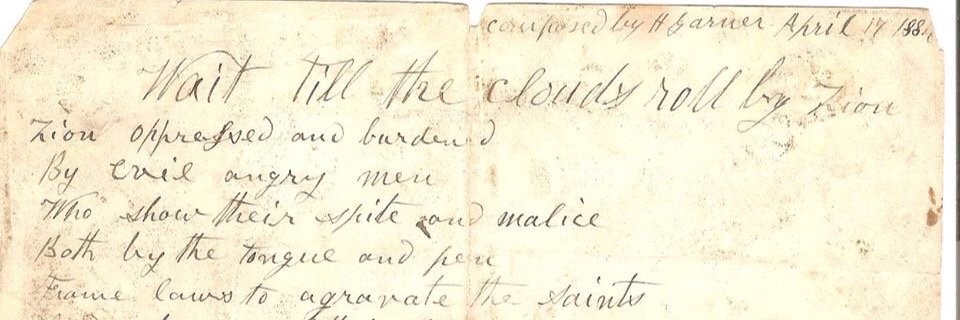 composed by H Garner April 17 188
Wait till the clouds roll by Zion
Zion oppressed and burdened
By evil angry men
Who show their spite and malice
Both by the tongue and pen
Frame laws to agravate the saints